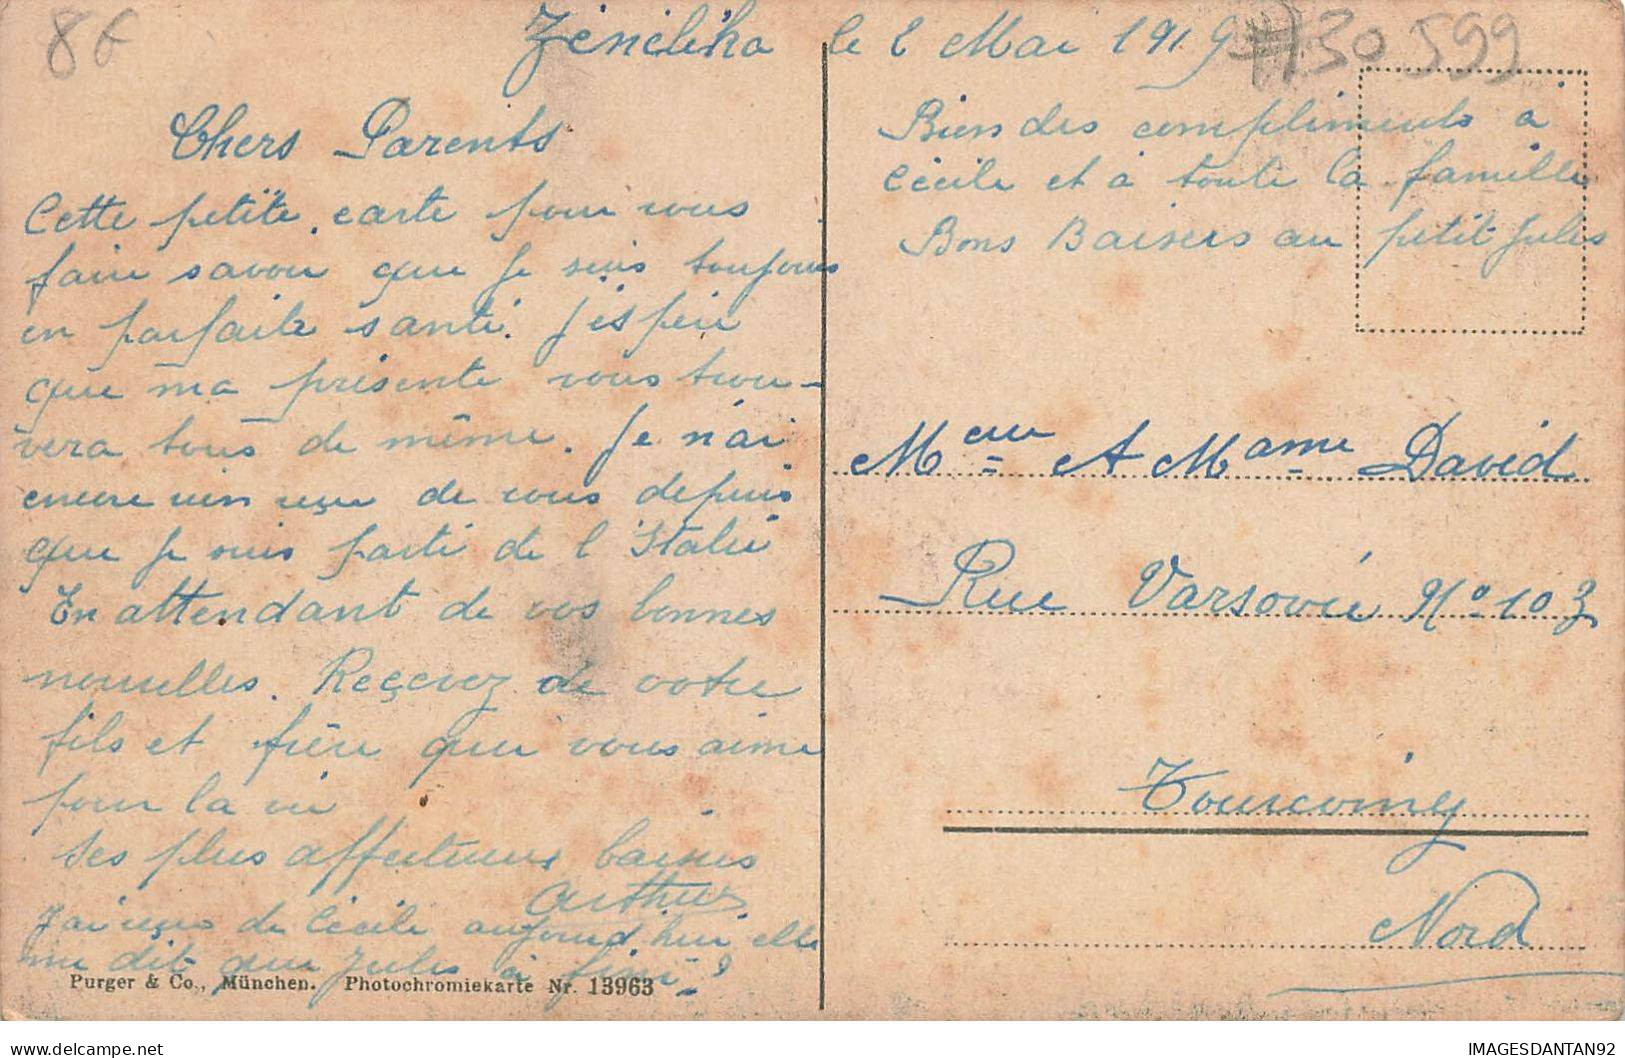 8€
le 2 Mai 1919
30599
Chers Parents
Cette petite carte pour vous
faire savoir que je suis toujours
en parfaite santé. j'espère
que ma présente vous trou-
vera tous de même. Je n'ai
encore rien reçu de vous depuis
que je suis parti de l'Italie
En attendant de vos bonnes
nouvelles. Reçevez de votre
fils et frère que vous aime
pour la vie
ses plus affectueux baisers
Arthur
J'ai reçu de Cécile aujourd'hui elle
me dit que Jules à fini
Purger & Co., München. Photochromiekarte Nr. 13963
Bien des compliments à
Cécile et à toute la famille
Bons Baisers au petit Jules
Mcur A Mame David
Rue Varsovie No 103
Tourcoing
Nord
delcampe.net
IMAGESDANTAN92